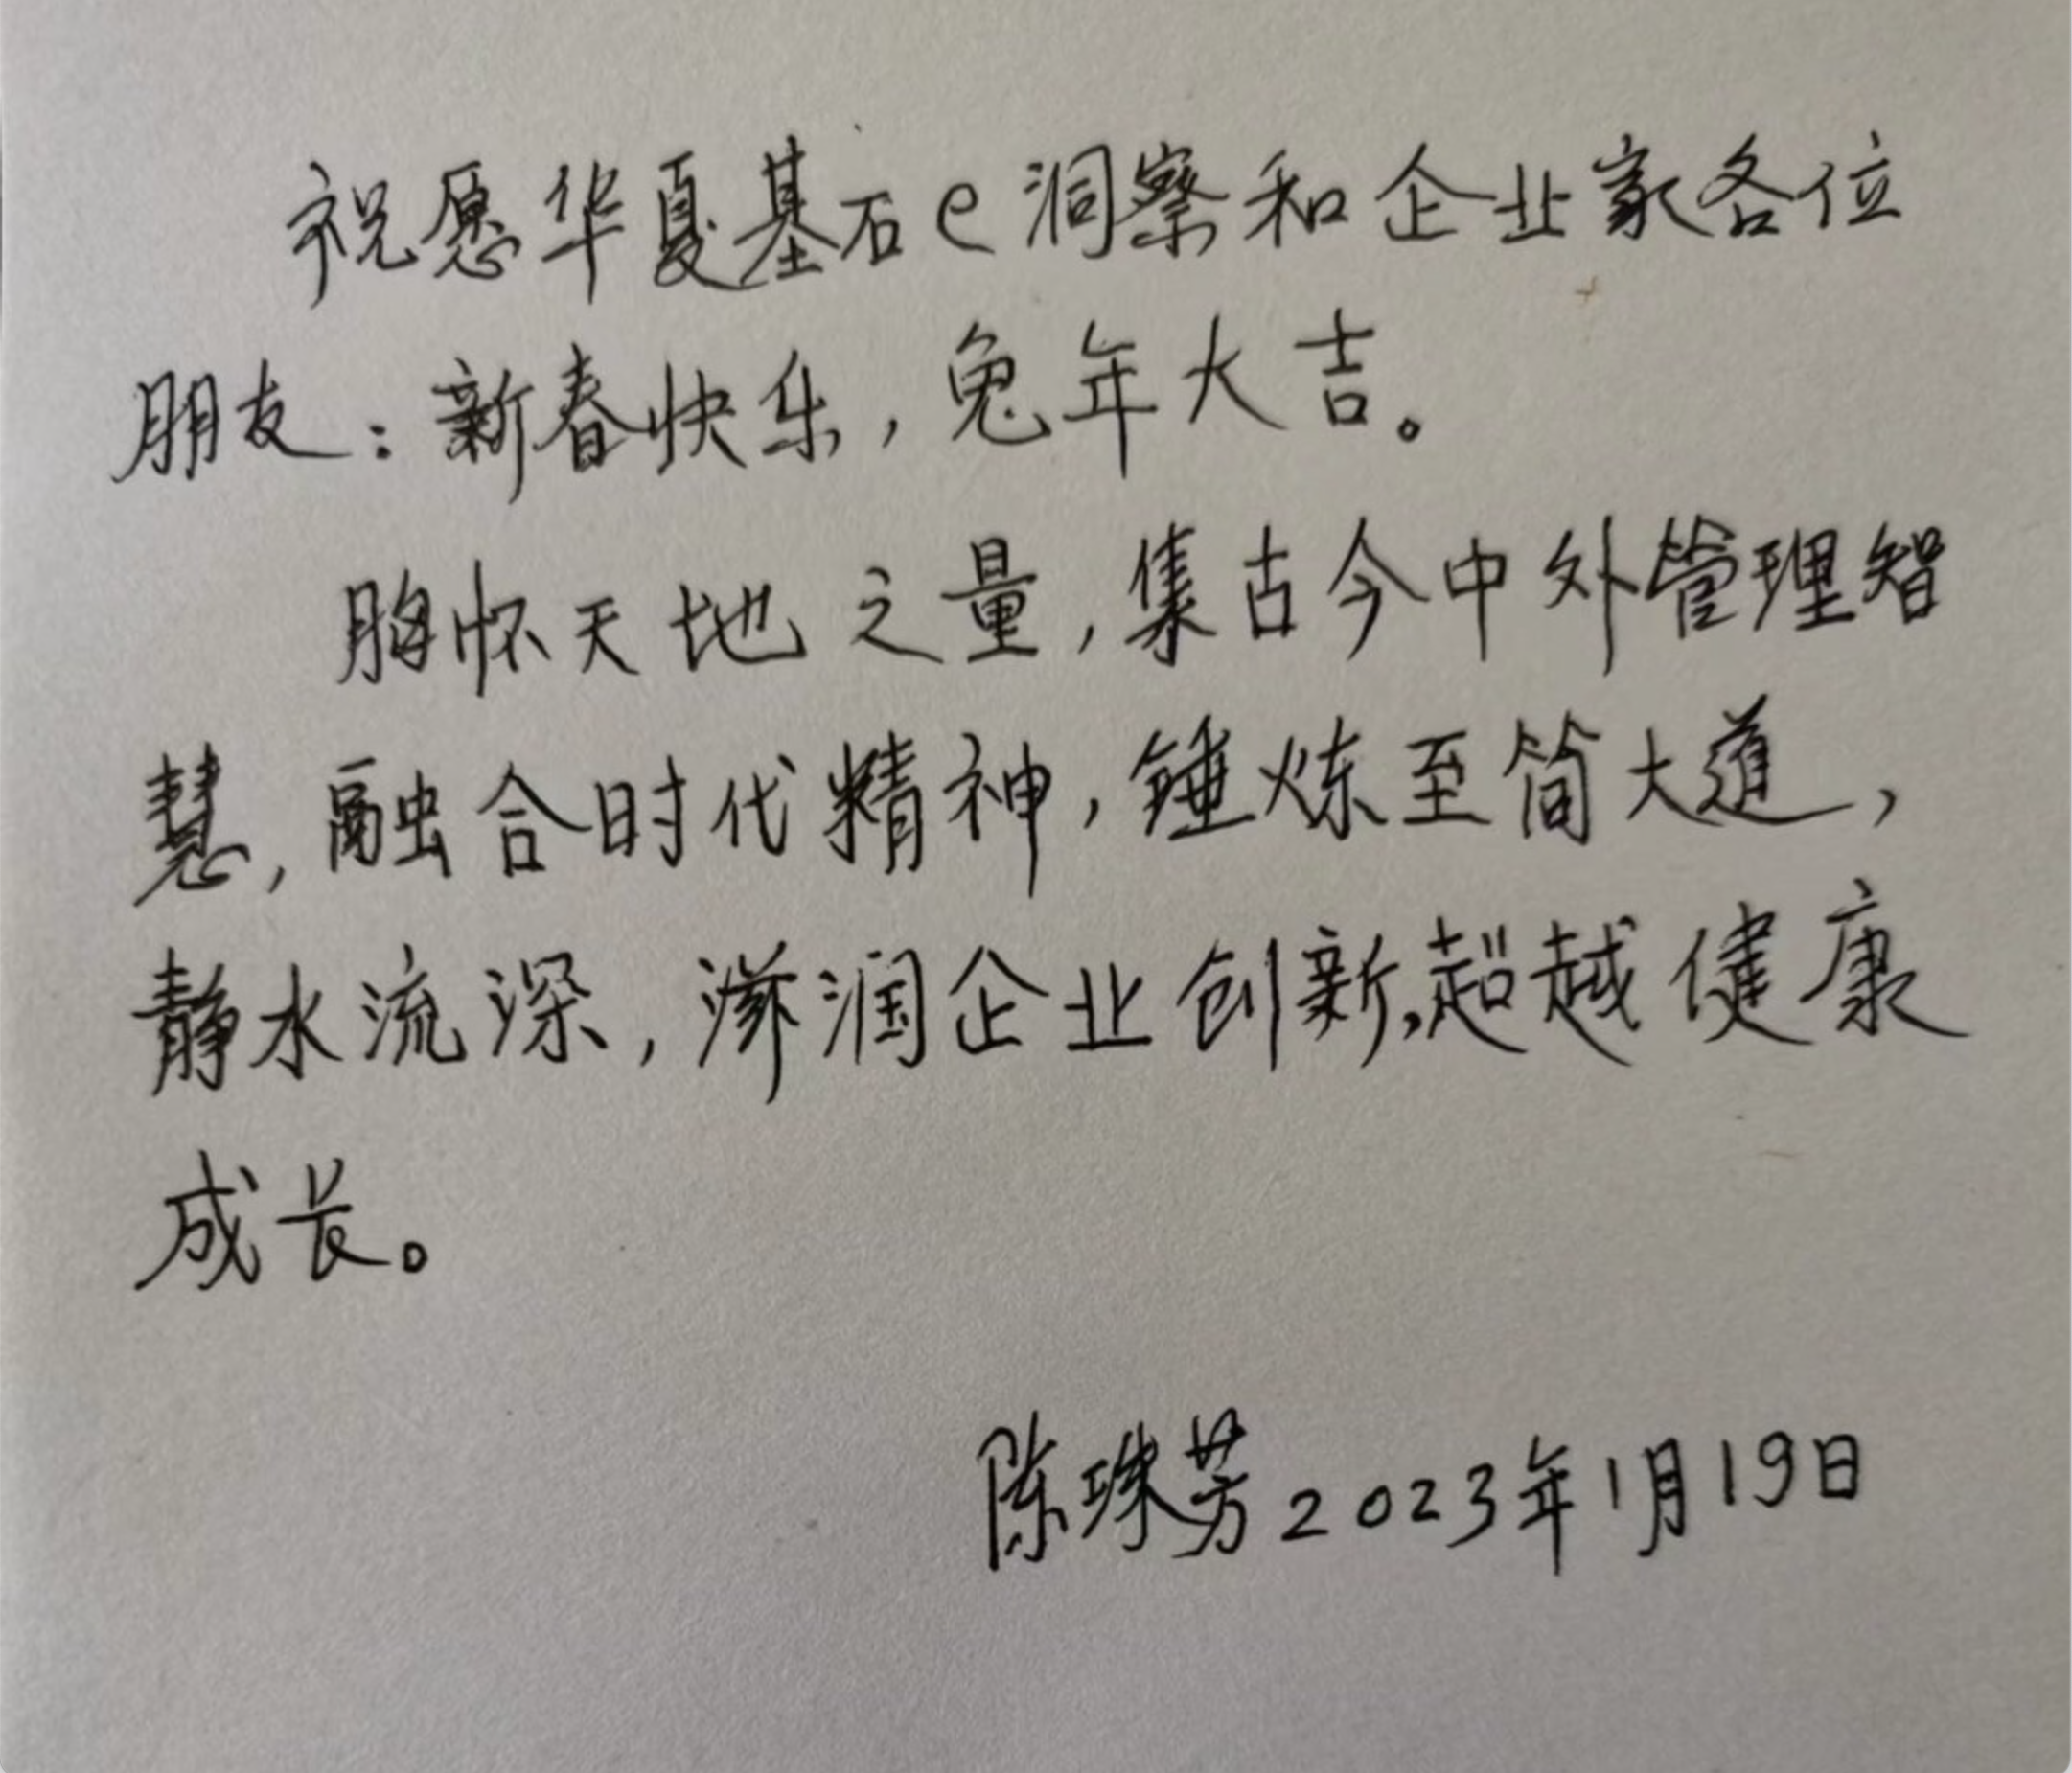 祝愿华夏基石e洞察和企业家各位
朋友：新春快乐，兔年大吉。
胸怀天地之量，集古今中外管理智
慧，融合时代精神，锤炼至简大道，
静水流深，滋润企业创新，超越健康
成长。
陈珠芳2023年1月19日